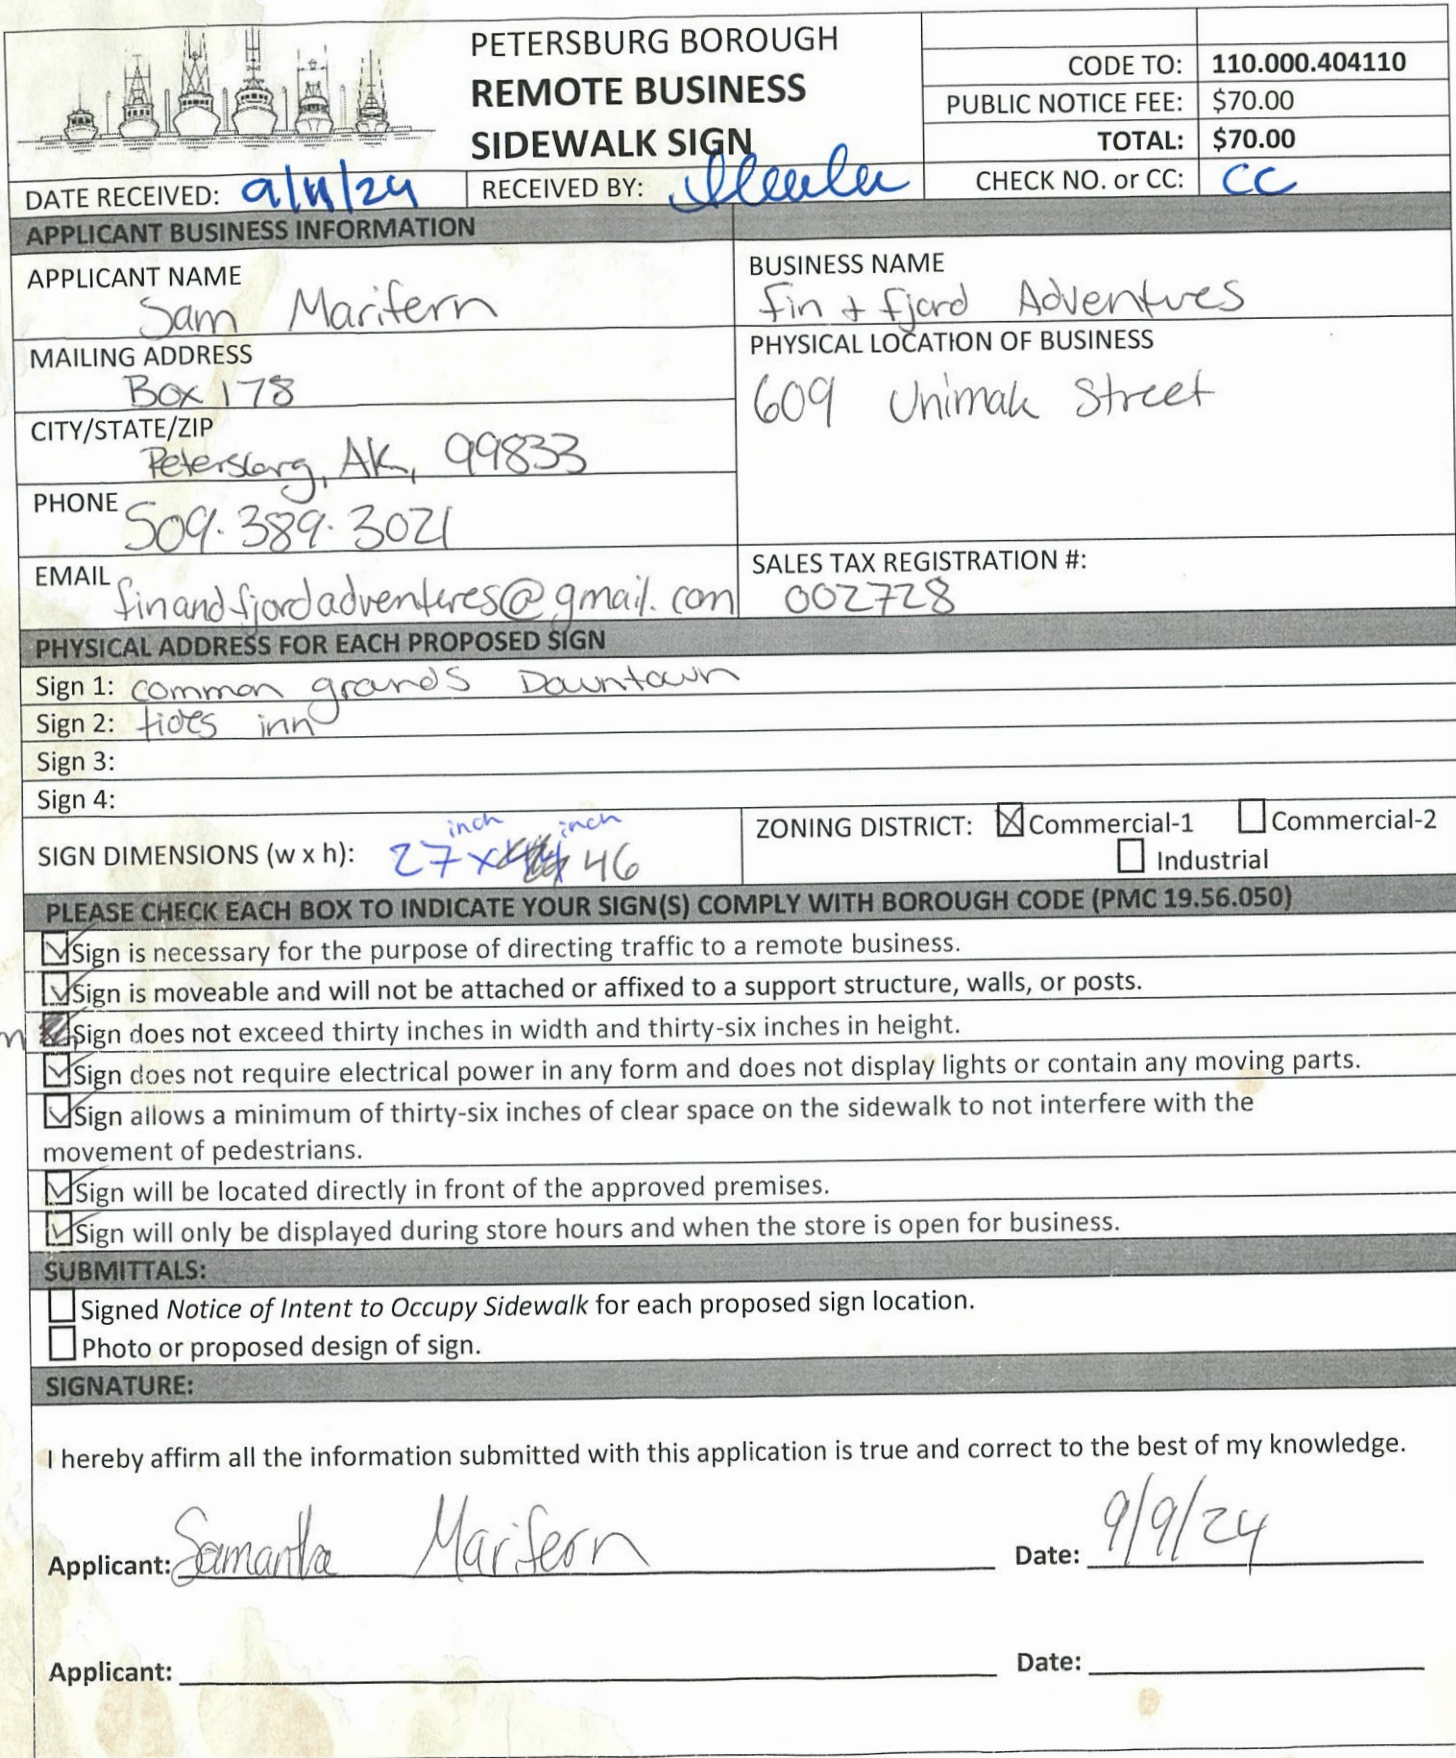 PETERSBURG BOROUGH
REMOTE BUSINESS
SIDEWALK SIGN
CODE TO: 110.000.404110
PUBLIC NOTICE FEE: $70.00
TOTAL: $70.00
DATE RECEIVED: 9/11/24 RECEIVED BY: CHECK NO. or CC: CC
APPLICANT BUSINESS INFORMATION
APPLICANT NAME
Sam Marifern
BUSINESS NAME
Fin + Fjord Adventures
MAILING ADDRESS
Box 178
PHYSICAL LOCATION OF BUSINESS
609 Unimak Street
CITY/STATE/ZIP
Petersburg, AK, 99833
PHONE 509.389.3021
EMAIL finandfjordadventures@gmail.com
SALES TAX REGISTRATION #:
002728
PHYSICAL ADDRESS FOR EACH PROPOSED SIGN
Sign 1: common grands Downtown
Sign 2: tides inn
Sign 3:
Sign 4:
SIGN DIMENSIONS (w x h): 27 inch x 46 inch
ZONING DISTRICT: Commercial-1 Commercial-2
Industrial
PLEASE CHECK EACH BOX TO INDICATE YOUR SIGN(S) COMPLY WITH BOROUGH CODE (PMC 19.56.050)
Sign is necessary for the purpose of directing traffic to a remote business.
Sign is moveable and will not be attached or affixed to a support structure, walls, or posts.
Sign does not exceed thirty inches in width and thirty-six inches in height.
Sign does not require electrical power in any form and does not display lights or contain any moving parts.
Sign allows a minimum of thirty-six inches of clear space on the sidewalk to not interfere with the
movement of pedestrians.
Sign will be located directly in front of the approved premises.
Sign will only be displayed during store hours and when the store is open for business.
SUBMITTALS:
Signed Notice of Intent to Occupy Sidewalk for each proposed sign location.
Photo or proposed design of sign.
SIGNATURE:
I hereby affirm all the information submitted with this application is true and correct to the best of my knowledge.
Applicant: Samantha Marifern Date: 9/9/24
Applicant: Date: